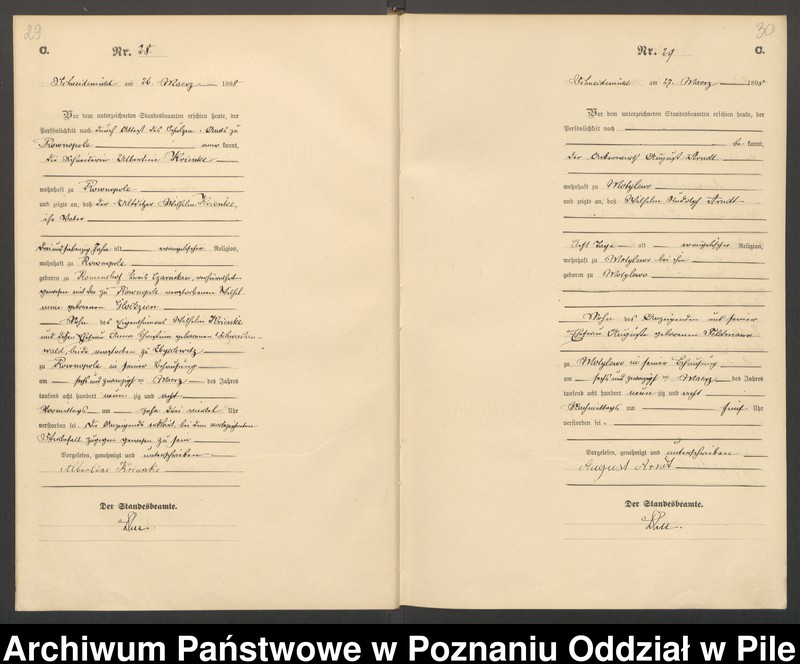 29
C.
Nr. 28.
Schneidemühl am 26. Maerz 1898
Vor dem unterzeichneten Standesbeamten erschien heute, der
Persönlichkeit nach durch Attest des Schulzen-Amts zu
Rownopole anerkannt,
die Albertine Krienke
wohnhaft zu Rownopole
und zeigte an, daß der Altsitzer Wilhelm Krienke,
ihr Vater
dreiundsiebenzig Jahre alt evangelischer Religion,
wohnhaft zu Rownopole
geboren zu Kreis Czarnikau, verheirathet
gewesen mit der zu Rownopole verstorbenen Wilhel-
mine geborenen
Sohn des Eigenthümers Wilhelm Krienke
und dessen Ehefrau Anna geborenen
beide verstorben zu
zu Rownopole in seiner Behausung
am sechsundzwanzigsten Maerz des Jahres
tausend acht hundert neunzig und acht
Vormittags um drei viertel Uhr
verstorben sei. Die Anzeigende erklärt, bei dem vorbezeichneten
Sterbefall zugegen gewesen zu sein
Vorgelesen, genehmigt und unterschrieben
Albertine Krienke
Der Standesbeamte.
30
Nr. 29
C.
Schneidemühl am 27. Maerz 1898
Vor dem unterzeichneten Standesbeamten erschien heute, der
Persönlichkeit nach
bekannt,
der Ackerwirth August Arndt
wohnhaft zu Motylewo
und zeigte an, daß Wilhelm Rudolf Arndt
acht Tage alt evangelischer Religion,
wohnhaft zu Motylewo bei ihm
geboren zu Motylewo
Sohn des Anzeigenden und seiner
Ehefrau Auguste geborenen Feldmann
zu Motylewo in seiner Behausung
am sechsundzwanzigsten Maerz des Jahres
tausend acht hundert neunzig und acht
Nachmittags um fünf Uhr
verstorben sei.
Vorgelesen, genehmigt und unterschrieben
August Arndt
Der Standesbeamte.
Archiwum Państwowe w Poznaniu Oddział w Pile